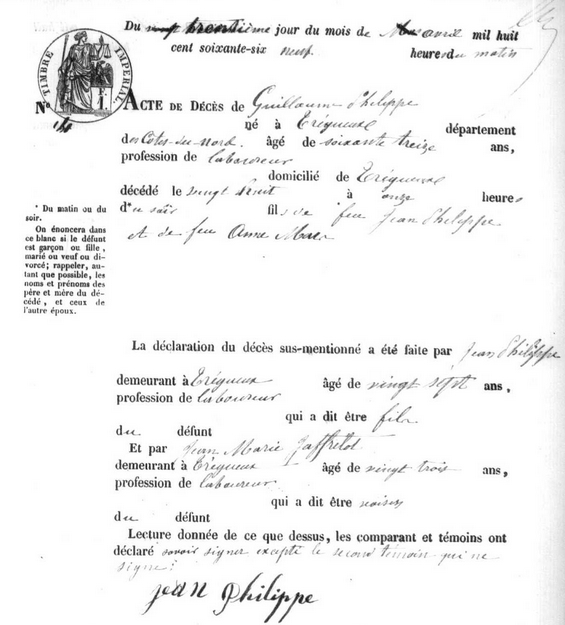 Du trentième jour du mois de avril mil huit
cent soixante-six neuf heures du matin
TIMBRE IMPÉRIAL.
N.º
ACTE DE DÉCÈS de Guillaume Philippe
né à Trégueux département
des Côtes-du-Nord. âgé de soixante treize ans,
profession de laboureur
domicilié de Trégueux
décédé le vingt huit à onze heures
du soir fils de feu Jean Philippe
et de feu Anne
* Du matin ou du
soir.
On énoncera dans
ce blanc si le défunt
est garçon ou fille,
marié ou veuf ou di-
vorcé; rappeler, au-
tant que possible, les
noms et prénoms des
père et mère du dé-
cédé, et ceux de
l'autre époux.
La déclaration du décès sus-mentionné a été faite par Jean Philippe
demeurant à Trégueux âgé de vingt sept ans,
profession de laboureur
qui a dit être fils
du défunt
Et par Jean Marie Jaffrelot
demeurant à Trégueux âgé de vingt trois ans,
profession de laboureur
qui a dit être voisin
du défunt
Lecture donnée de ce que dessus, les comparant et témoins ont
déclaré savoir signer excepté le second témoin qui ne
signe.
jean philippe